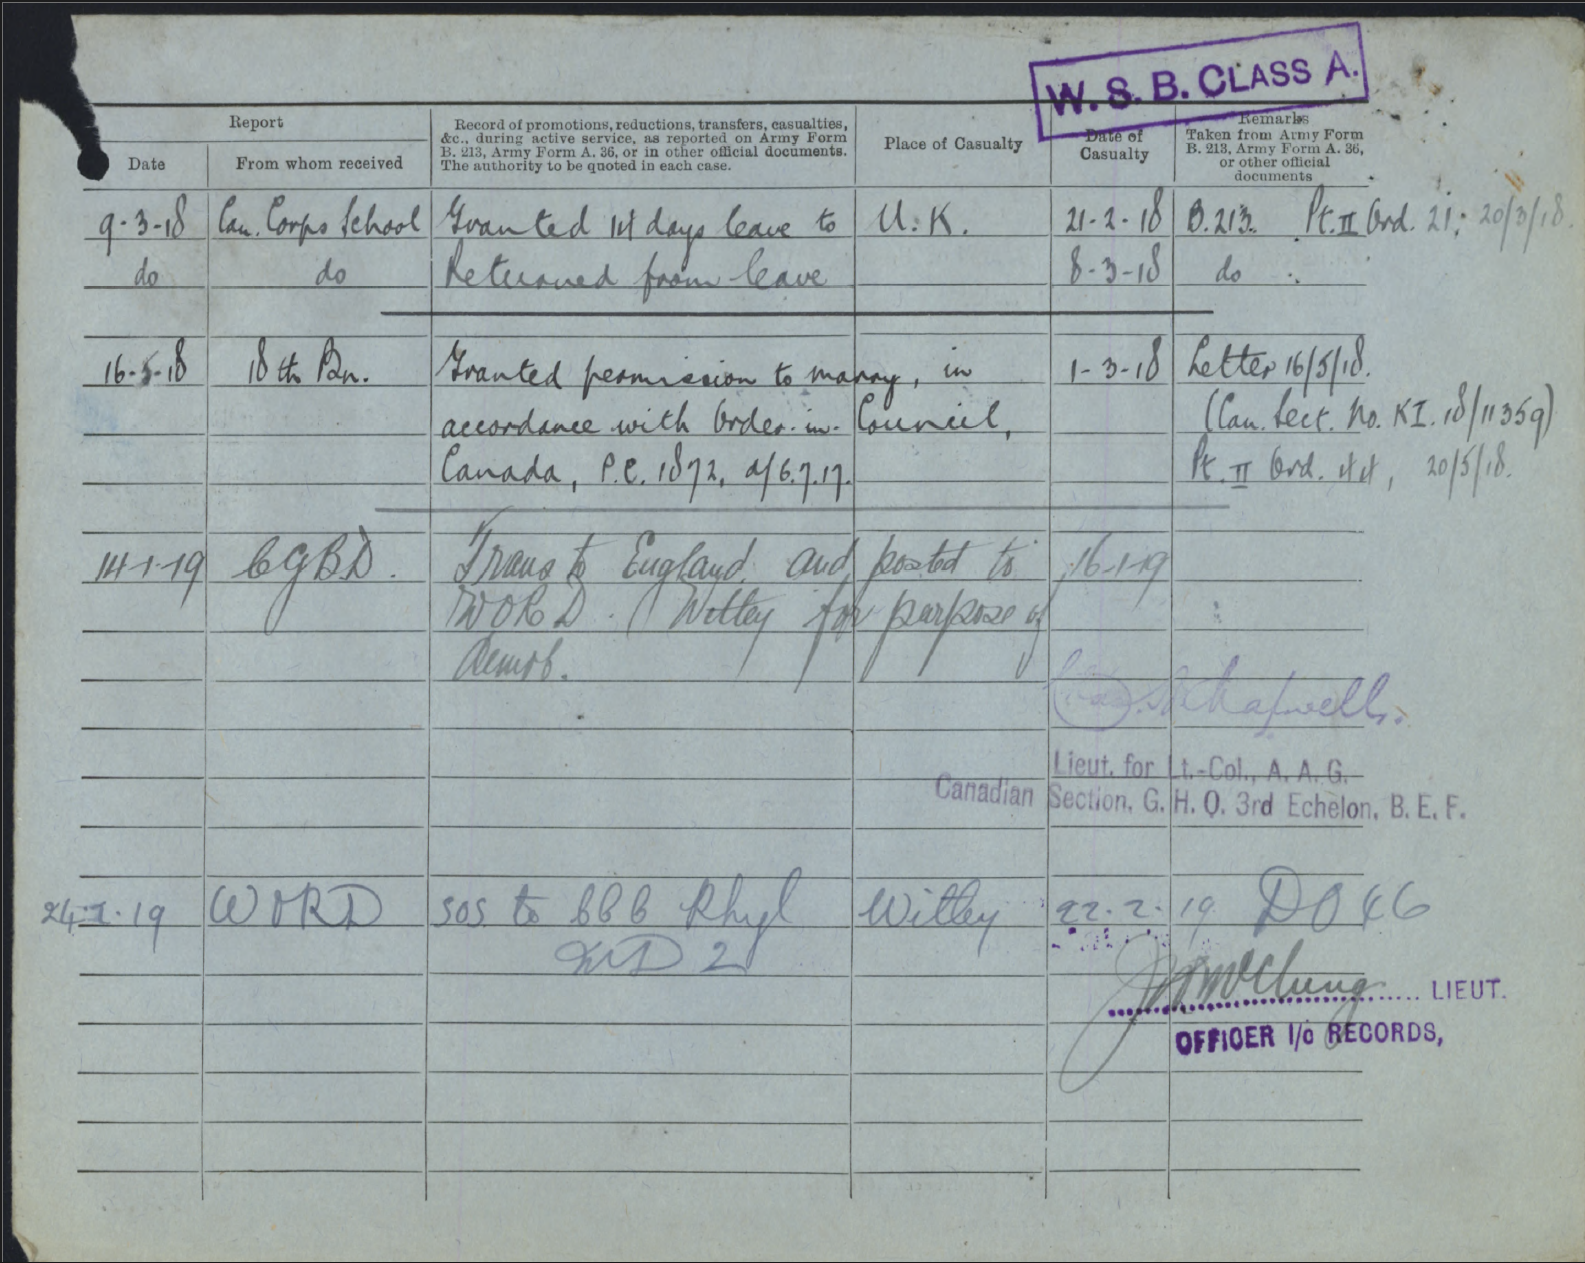 W. S. B. CLASS A.
Report
Date
From whom received
Record of promotions, reductions, transfers, casualties,
&c., during active service, as reported on Army Form
B. 213, Army Form A. 36, or in other official documents.
The authority to be quoted in each case.
Place of Casualty
Date of
Casualty
Remarks
Taken from Army Form
B. 213, Army Form A. 36,
or other official
documents
9-3-18 Can. Corps School Granted 14 days leave to U.K. 21-2-18 B.213. Pt. II Ord. 21; 20/3/18.
do do Returned from leave 8-3-18 do
16-5-18 18th Bn. Granted permission to marry, in 1-3-18 Letter 16/5/18.
accordance with Order-in-Council, (Can. Sect. No. KI. 18/11359)
Canada, P.C. 1872, d/6.7.17. Pt. II Ord. 44, 20/5/18.
14-1-19 CGBD. Trans to England and posted to 16-1-19
WORD. Witley for purpose of
demob.
Lieut. for Lt.-Col., A. A. G.
Canadian Section, G. H. Q. 3rd Echelon, B. E. F.
19 WORD SOS to CCC Rhyl Witley 22.2.19 DO 46
MD 2
LIEUT.
OFFICER I/c RECORDS,